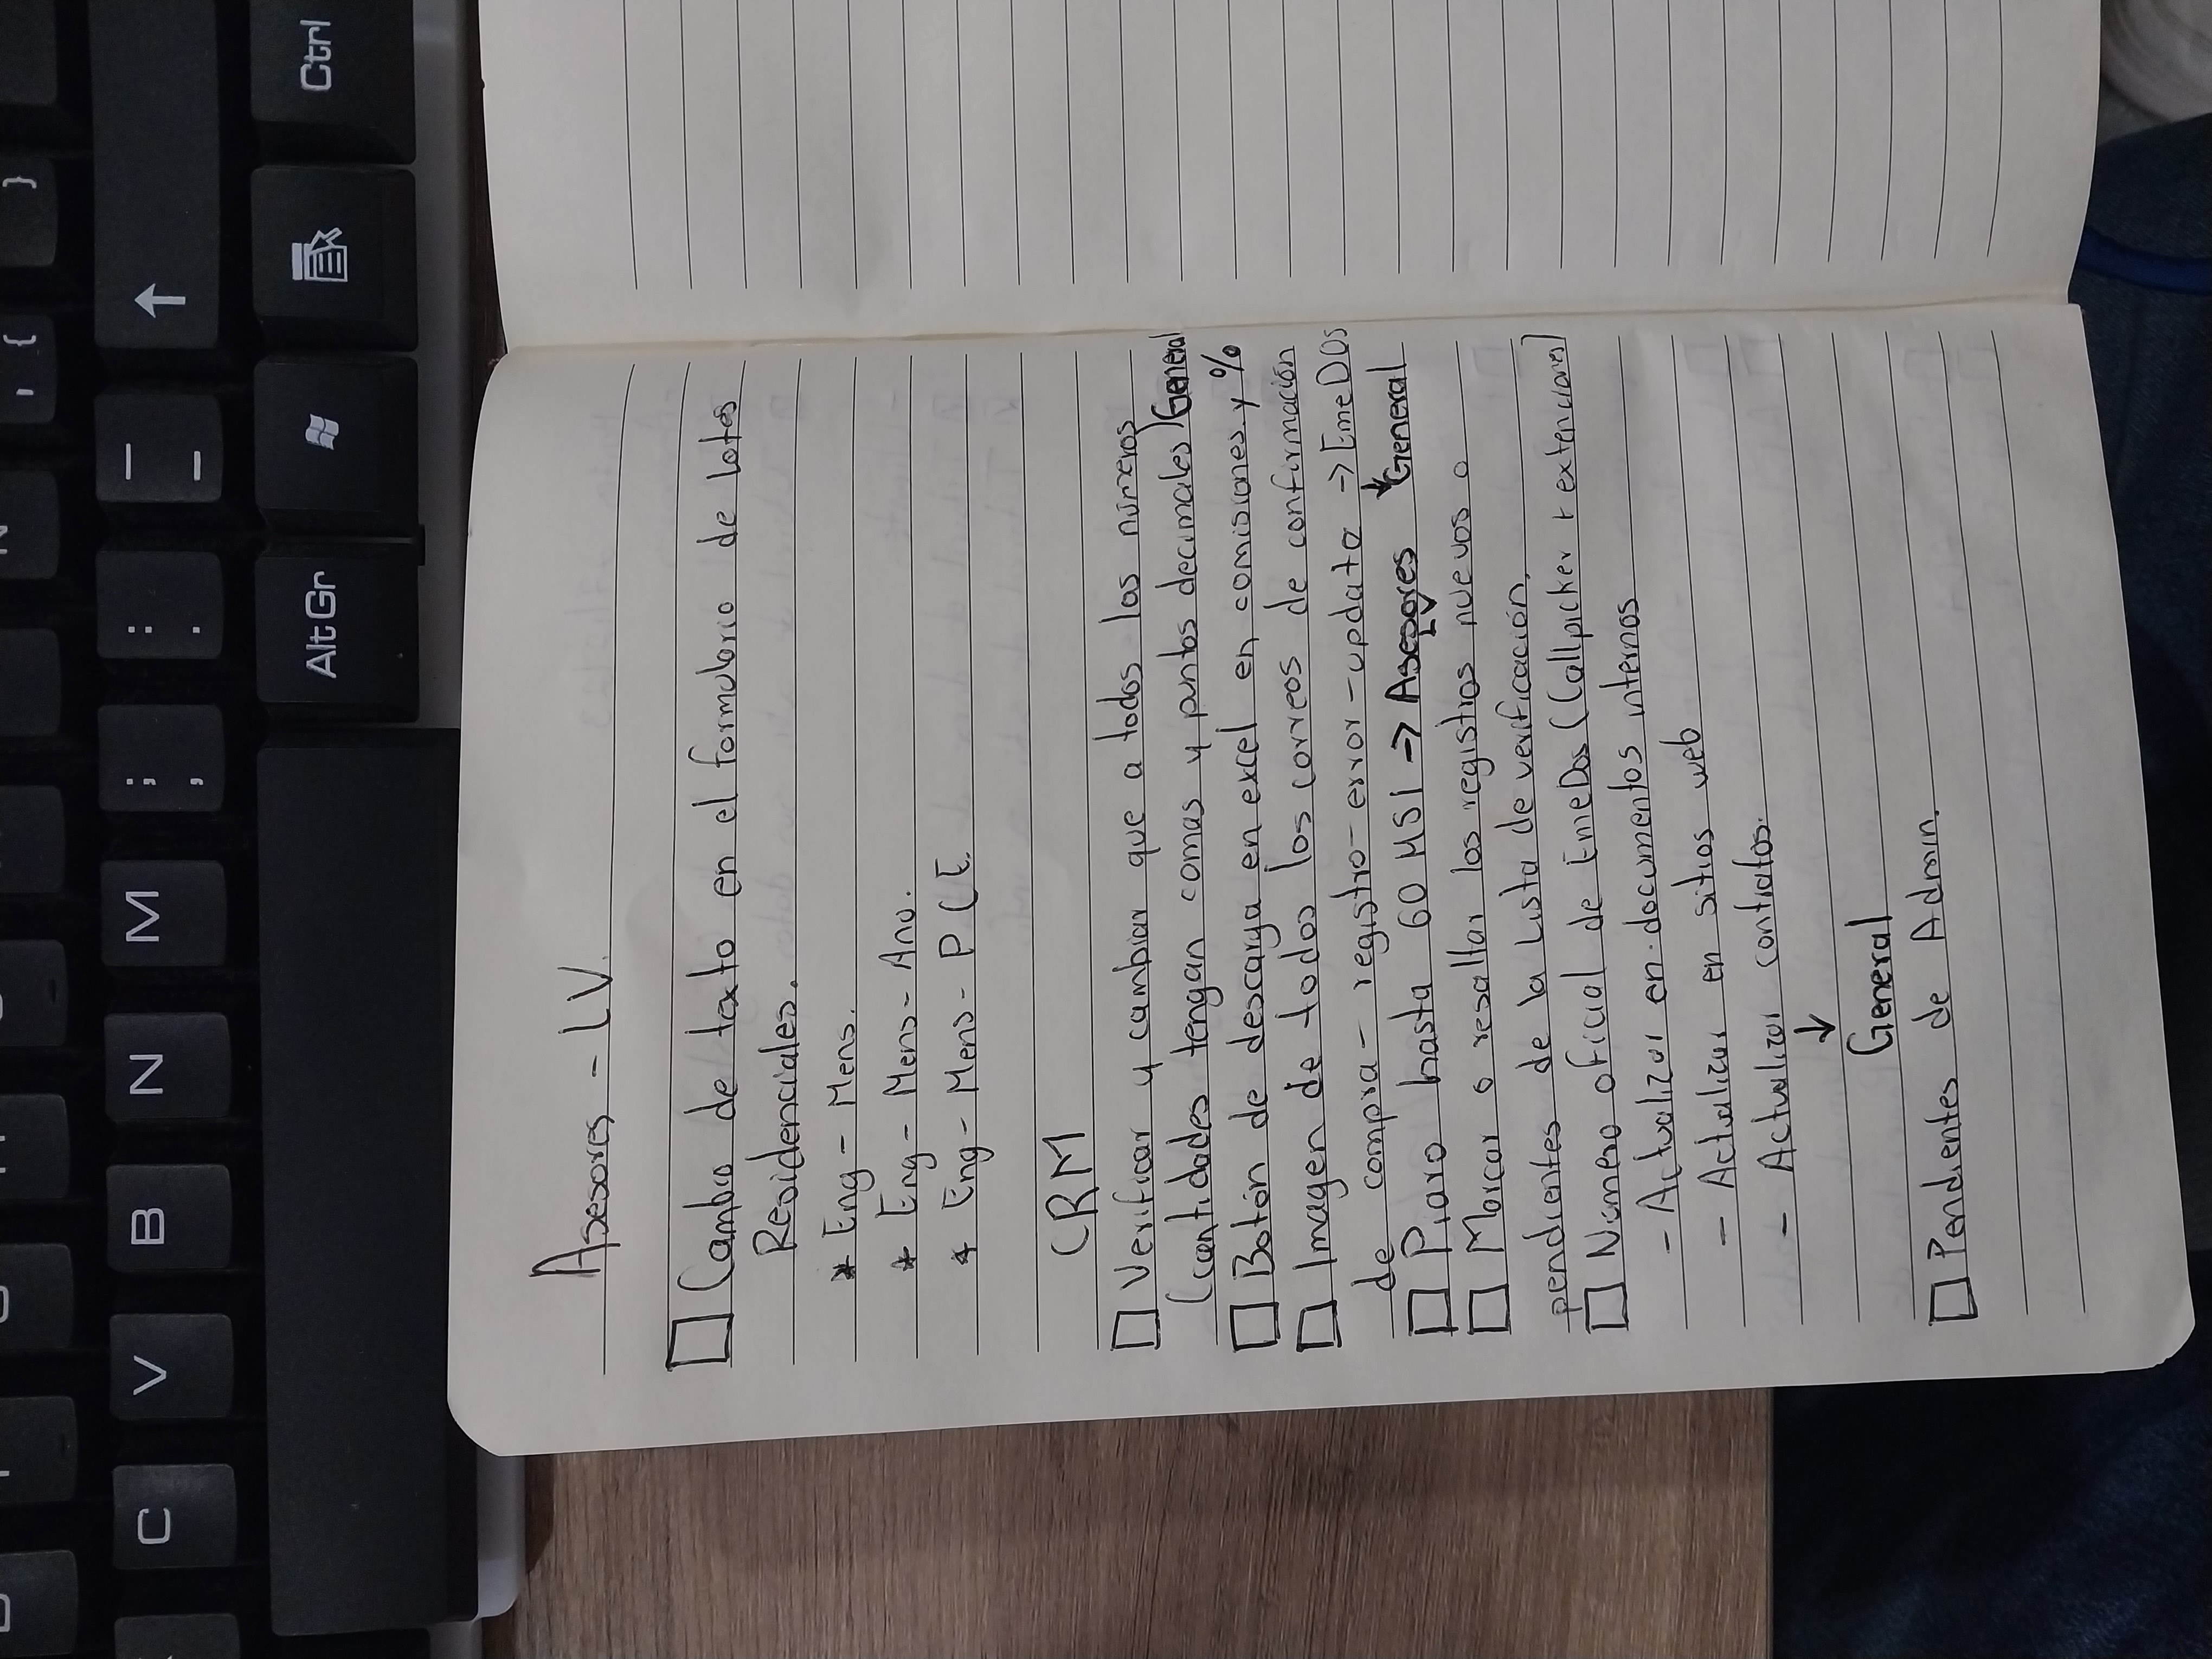 Asesores - LV.
□ Cambio de texto en el formulario de lotes
Residenciales.
* Eng - Mens.
* Eng - Mens - Ano.
* Eng - Mens - PCE.
CRM
□ Verificar y cambiar que a todos los números
(cantidades tengan comas y puntos decimales) General
□ Botón de descarga en excel en comisiones y %
□ Imagen de todos los correos de confirmación
de compra - registro - error - update → EmeDos
↓ General
□ Plazo hasta 60 MSI → Asesores LV
□ Marcar o resaltar los registros nuevos o
pendientes de la Lista de verificación,
□ Número oficial de EmeDos (Callpicker + extenciones)
- Actualizar en documentos internos
- Actualizar en sitios web
- Actualizar contratos.
↓
General
□ Pendientes de Admin.
Ctrl
AltGr
M
N
B
V
C